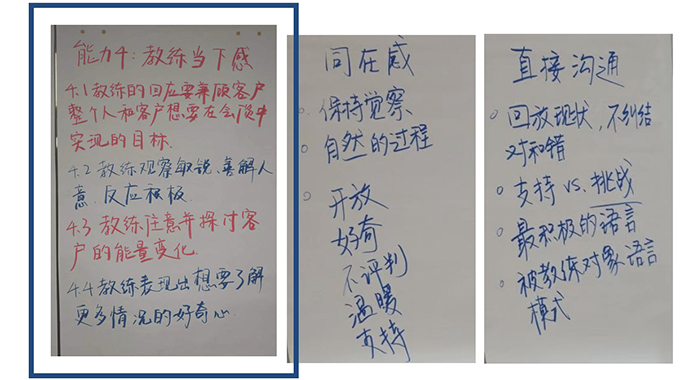 能力4：教练当下感
4.1 教练的回应要兼顾客户
整个人和客户想要在会谈中
实现的目标.
4.2 教练观察敏锐、善解人
意、反应积极.
4.3 教练注意并探讨客
户的能量变化.
4.4 教练表现出想要了解
更多情况的好奇心.
同在感
保持觉察
自然的过程
开放
好奇
不评判
温暖
支持
直接沟通
回放现状，不纠结
对和错
支持 vs. 挑战
最积极的语言
被教练对象语言
模式